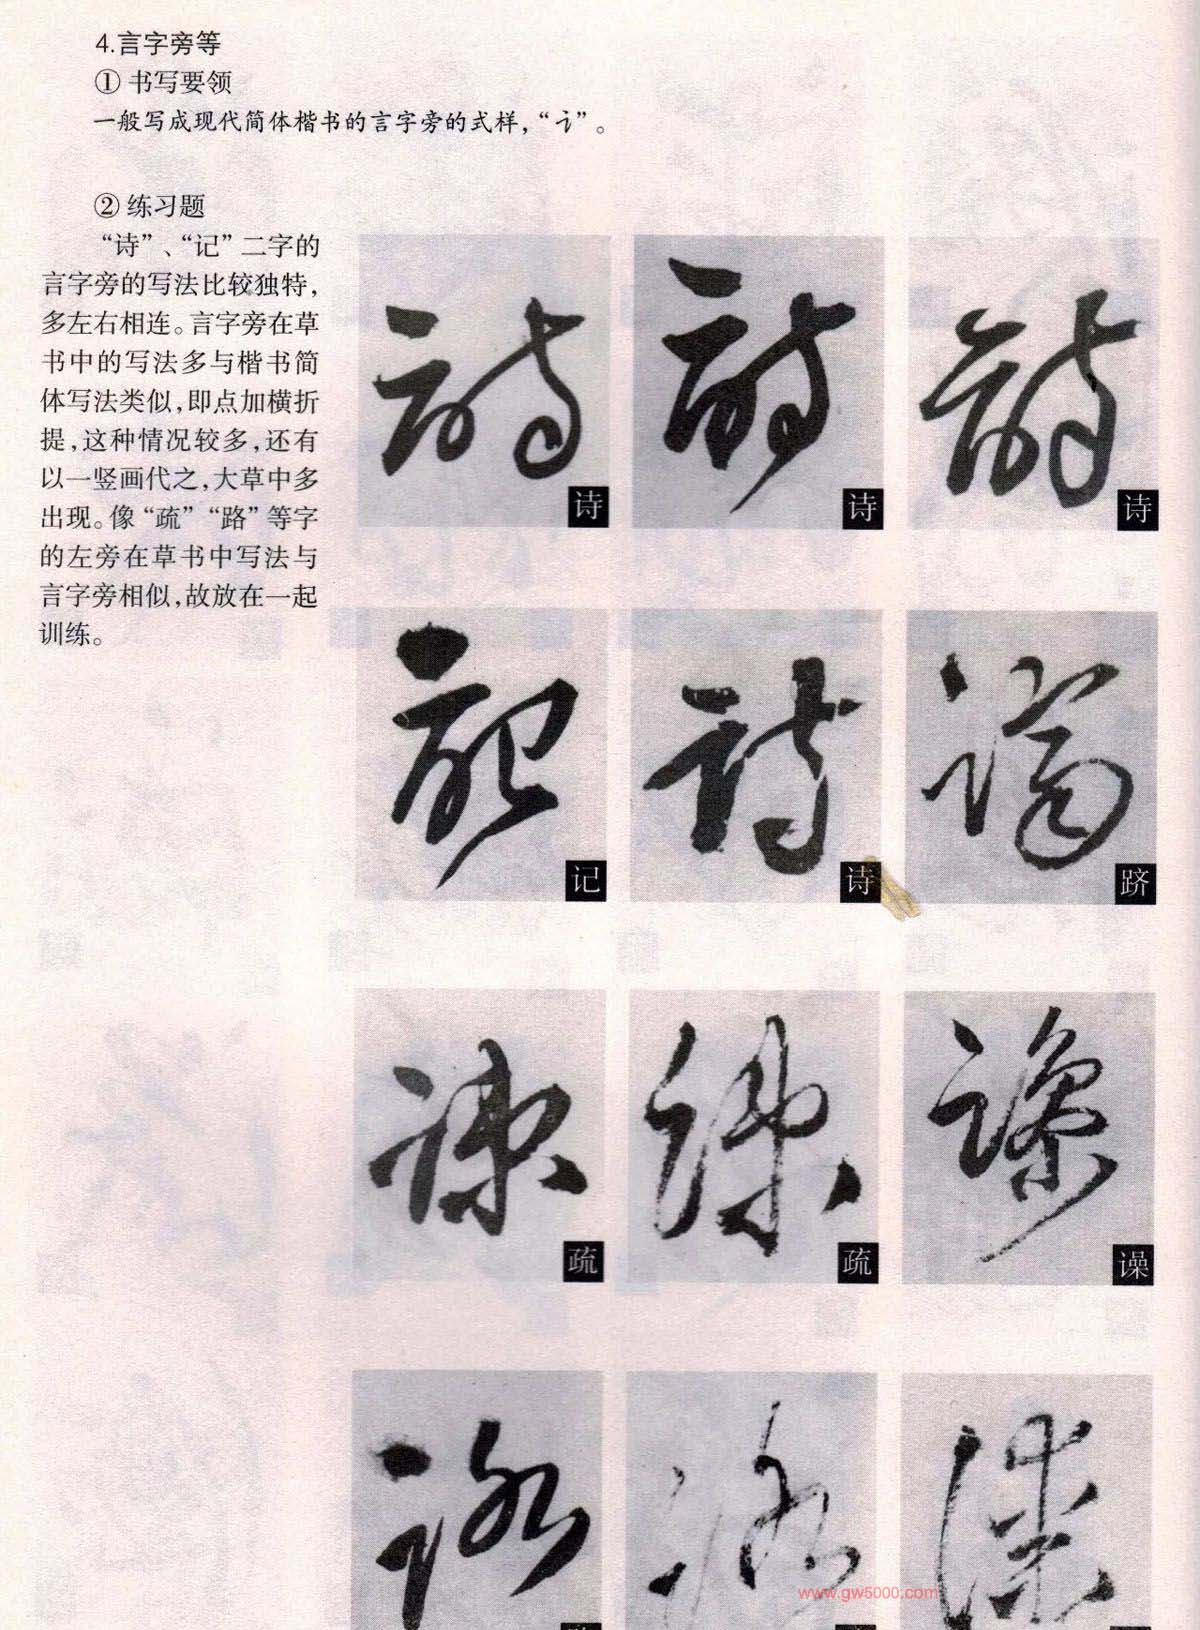 4.言字旁等
① 书写要领
一般写成现代简体楷书的言字旁的式样，“讠”。
② 练习题
“诗”、“记”二字的
言字旁的写法比较独特，
多左右相连。言字旁在草
书中的写法多与楷书简
体写法类似，即点加横折
提，这种情况较多，还有
以一竖画代之，大草中多
出现。像“疏”“路”等字
的左旁在草书中写法与
言字旁相似，故放在一起
训练。
诗
诗
诗
记
诗
跻
疏
疏
谍
www.gw5000.com